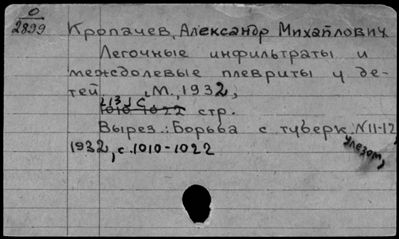 О
2899
Кропачев, Александр Михайлович
Легочные инфильтраты и
междолевые плевриты у де-
тей. М., 1932,
1010-1022 стр.
Вырез.: Борьба с туберк. N11-12
улезом,
1932, с. 1010-1022